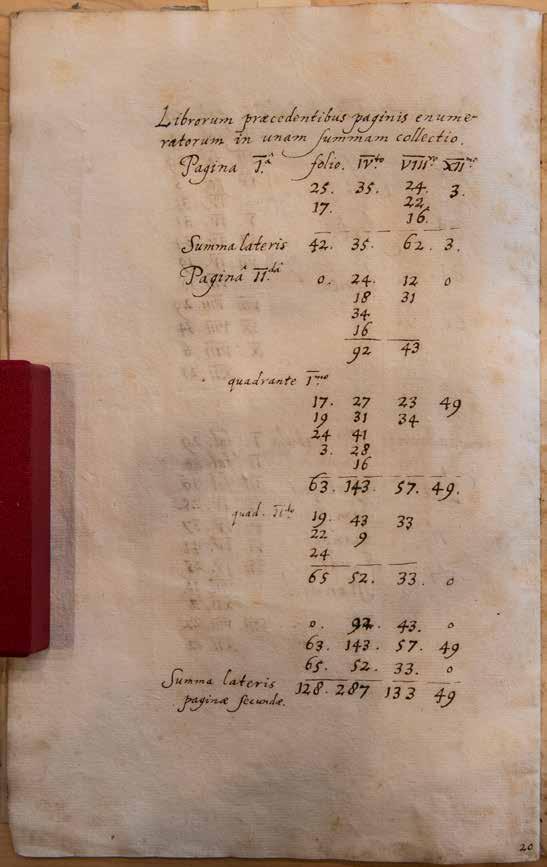 Librorum præcedentibus paginis enume-
ratorum in unam summam collectio.
Pagina I.ᵃ folio. IVᵗᵒ VIIIᵛᵒ XIIᵐᵒ
25. 35. 24. 3.
17. 22
16.
Summa lateris 42. 35. 62. 3.
Pagina IIᵈᵃ 0. 24. 12 0
18 31
34
16
92 43
quadrante Iᵐᵒ
17. 27 23 49
19 31 34
24 41
3. 28
16
63. 143. 57. 49.
quad. IIᵈᵒ 19. 43 33
22 9
24
65 52. 33. 0
0. 92. 43. 0
63. 143. 57. 49
65. 52. 33. 0
Summa lateris 128. 287 133 49
paginæ secundæ.
20